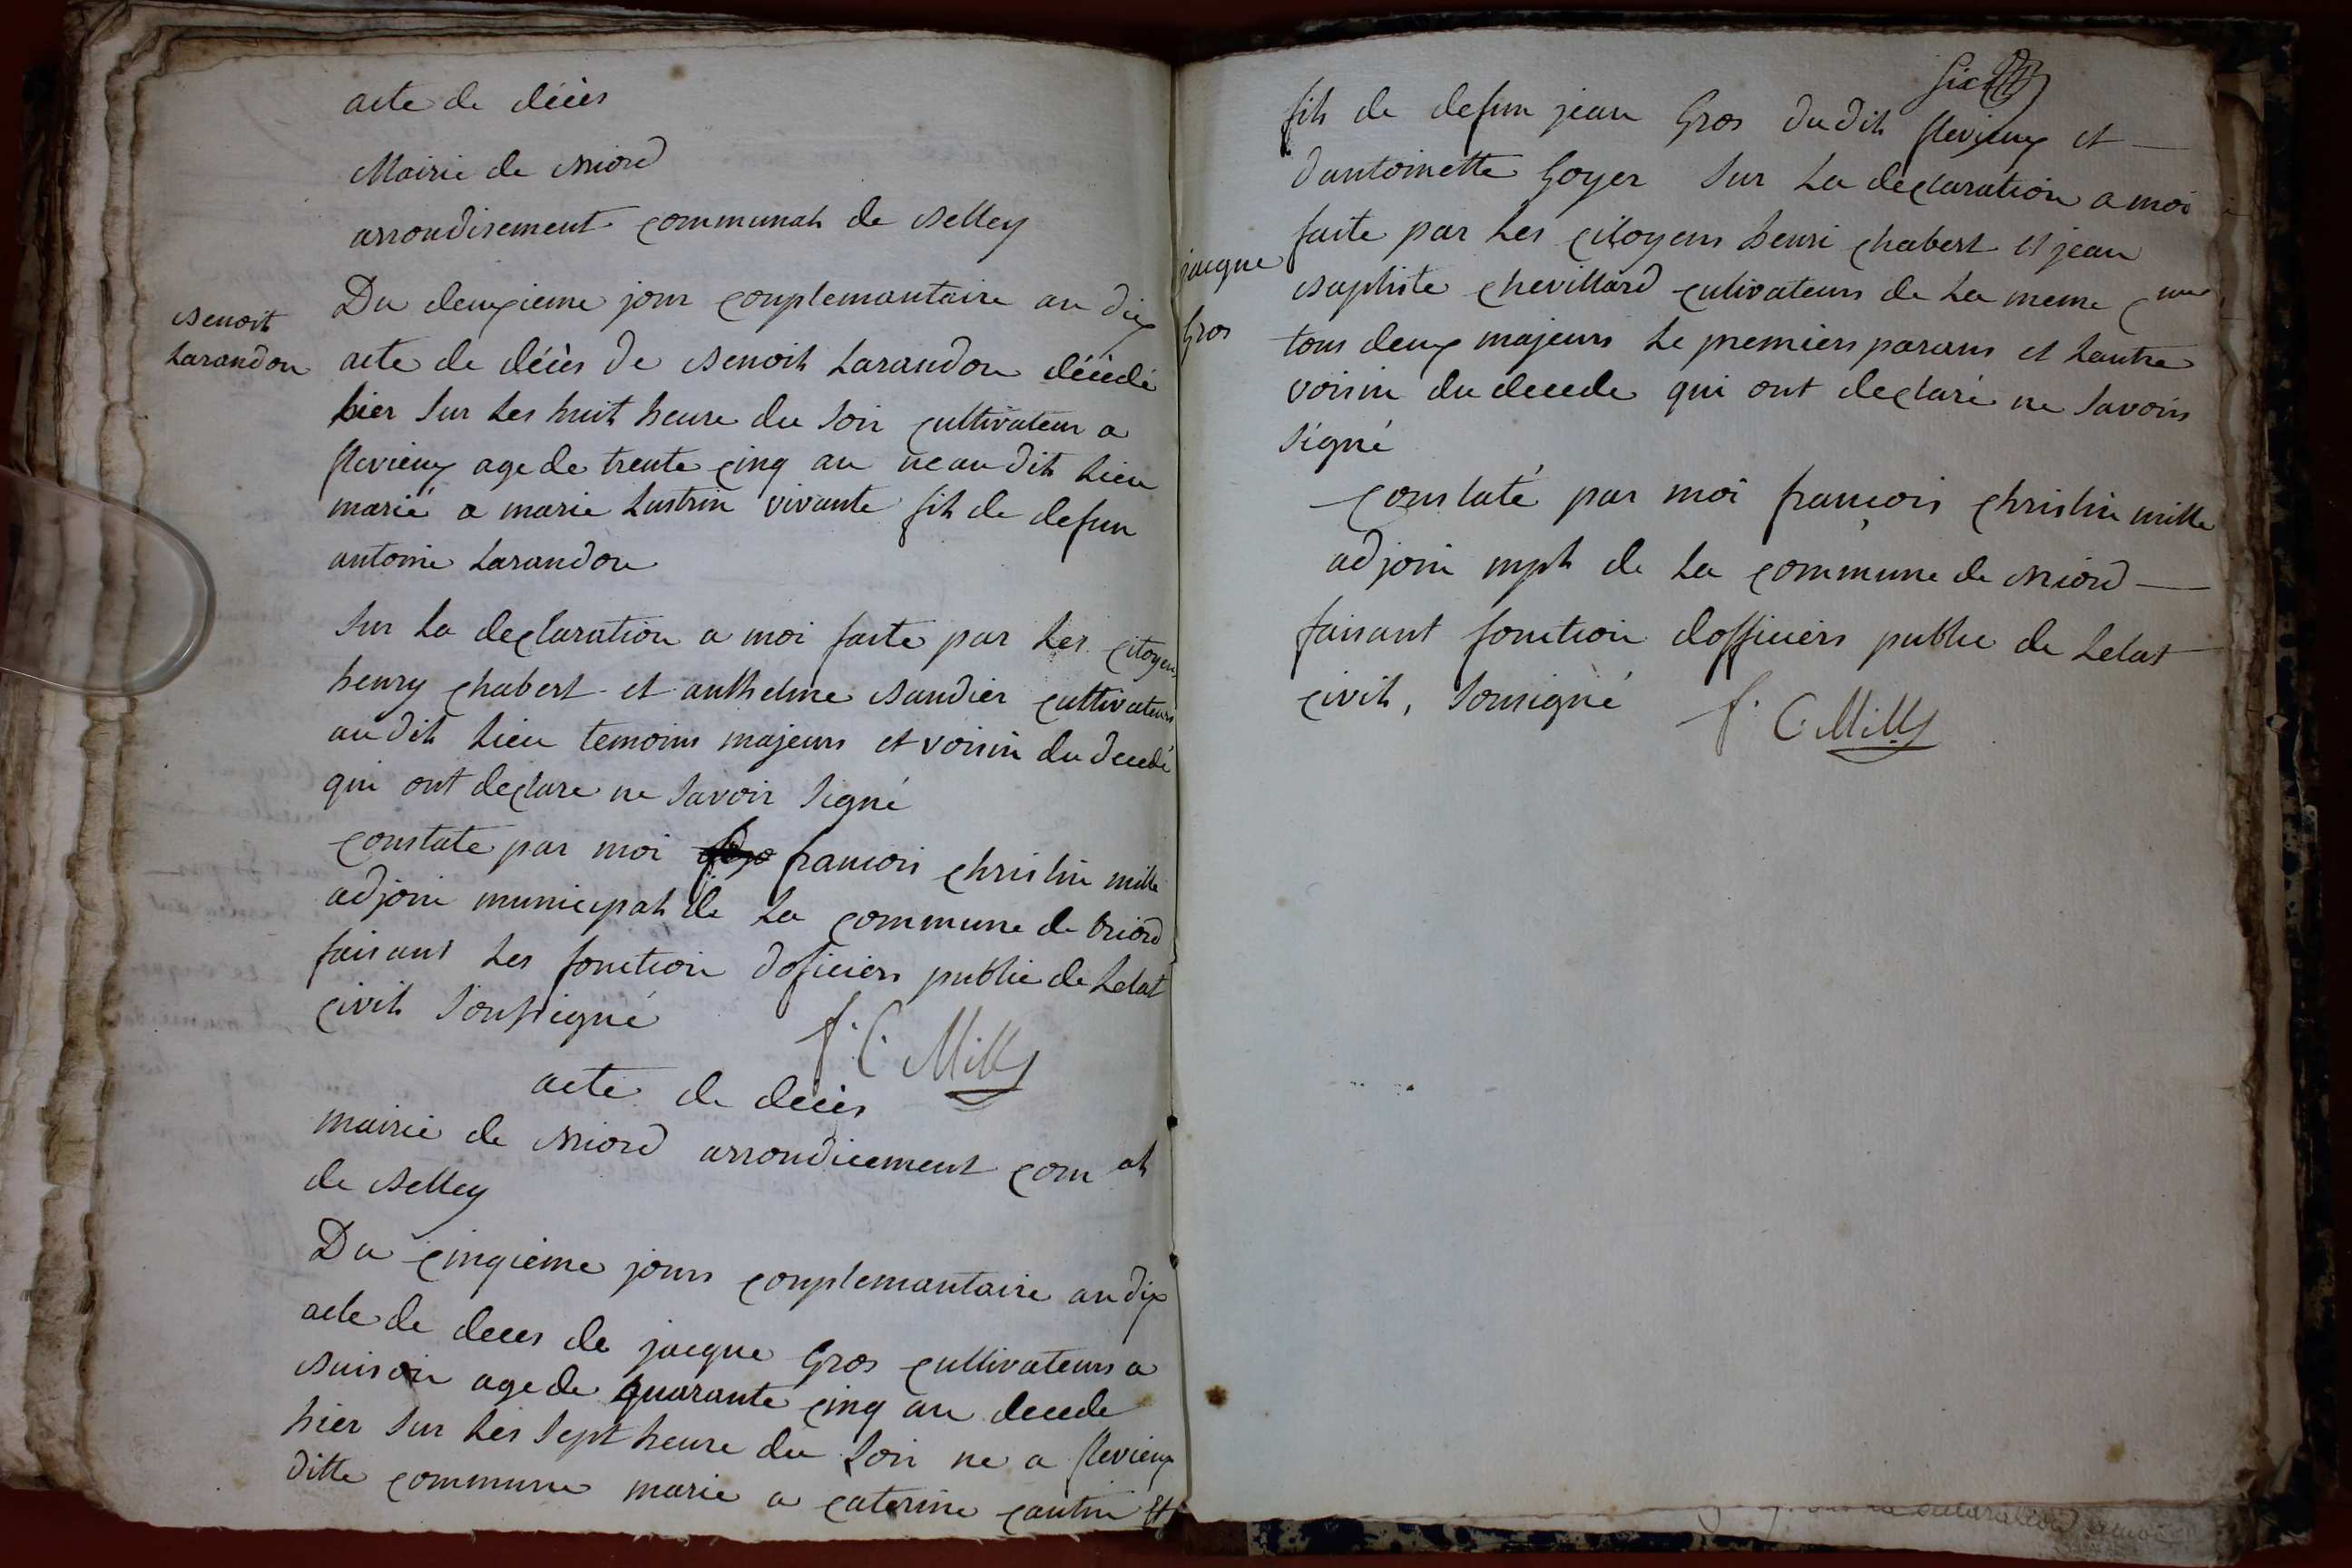 acte de décès
Mairie de Briord
arrondisement communal de Belley
Benoit
Larandon
Du deuxieme jour complemantaire an dix
acte de décès de Benoit Larandon décédé
hier sur les huit heure du soir cultivateur a
flevieux age de trente cinq an né au dit lieu
marié a marie Lustrin vivante fils de defun
antoine Larandon
Sur la declaration a moi faite par les citoyens
henry chabert et anthelme Baudier cultivateurs
au dit lieu temoins majeurs et voisin du décédé
qui ont declare ne savoir signé
constate par moi francois christin mille
adjoin municipal de la commune de Briord
faisant les fonction doficiers public de letat
civil soussigné
f. C. Mille
acte de décès
mairie de Briord arrondicement com al
de Belley
Du cinqième jours complemantaire an dix
acte de deces de jacque Gros cultivateurs a
Buison age de quarante cinq an decede
hier sur les sept heure du soir ne a flevieux
ditte commune marie a caterine cantin et
six
fils de defun jean Gros du dit flevieux et
dantoinette Goyer sur la declaration a moi
faite par les citoyens henri chabert et jean
jacque
Gros
Baptiste chevillard cultivateurs de la meme cune
tous deux majeurs le premiers parans et lautre
voisin du decede qui ont declaré ne savoirs
signé
constaté par moi françois christin mille
adjoin mpl de la commune de Briord
faisant fonction dofficiers public de letat
civil, sousigné
f. C. Mille